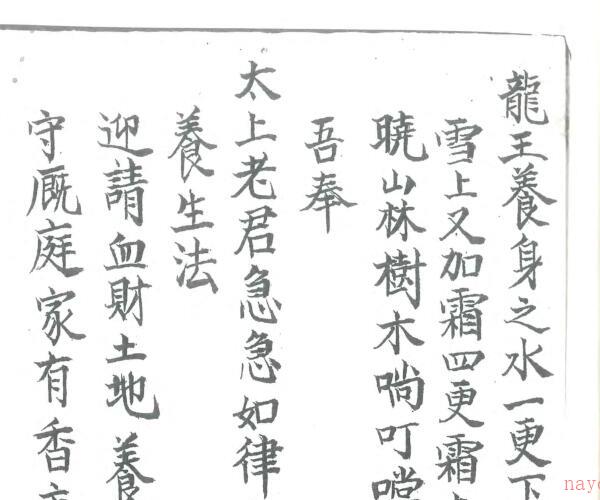 龍王養身之水一更下
雪上又加霜四更霜
曉山林樹木啲叮噹
吾奉
太上老君急急如律
養生法
迎請血財土地養
守厩庭家有香
nayo